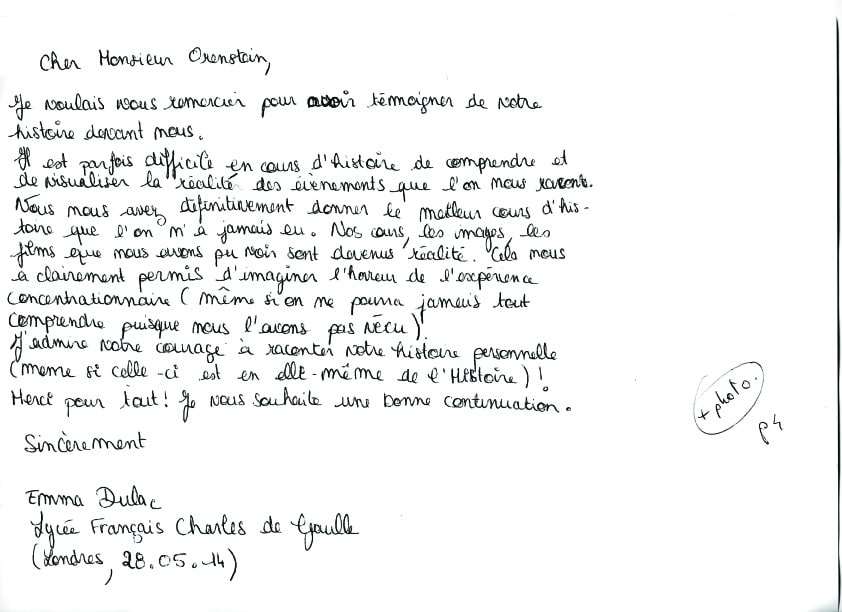 Cher Monsieur Orenstein,
Je voulais vous remercier pour avoir témoigner de votre
histoire devant nous.
Il est parfois difficile en cours d'histoire de comprendre et
de visualiser la réalité des évènements que l'on nous raconte.
Vous nous avez définitivement donner le meilleur cours d'his-
toire que l'on m'a jamais eu. Nos cours, les images, les
films que nous avons pu voir sont devenus réalité. Cela nous
a clairement permis d'imaginer l'horreur de l'expérience
concentrationnaire (même si on ne pourra jamais tout
comprendre puisque nous l'avons pas vécu)!
J'admire votre courage à raconter votre histoire personnelle
(même si celle-ci est en elle-même de l'Histoire)!
Merci pour tout! Je vous souhaite une bonne continuation.
+ photo.
p4
Sincèrement
Emma Dulac
Lycée Français Charles de Gaulle
(Londres, 28.05.14)